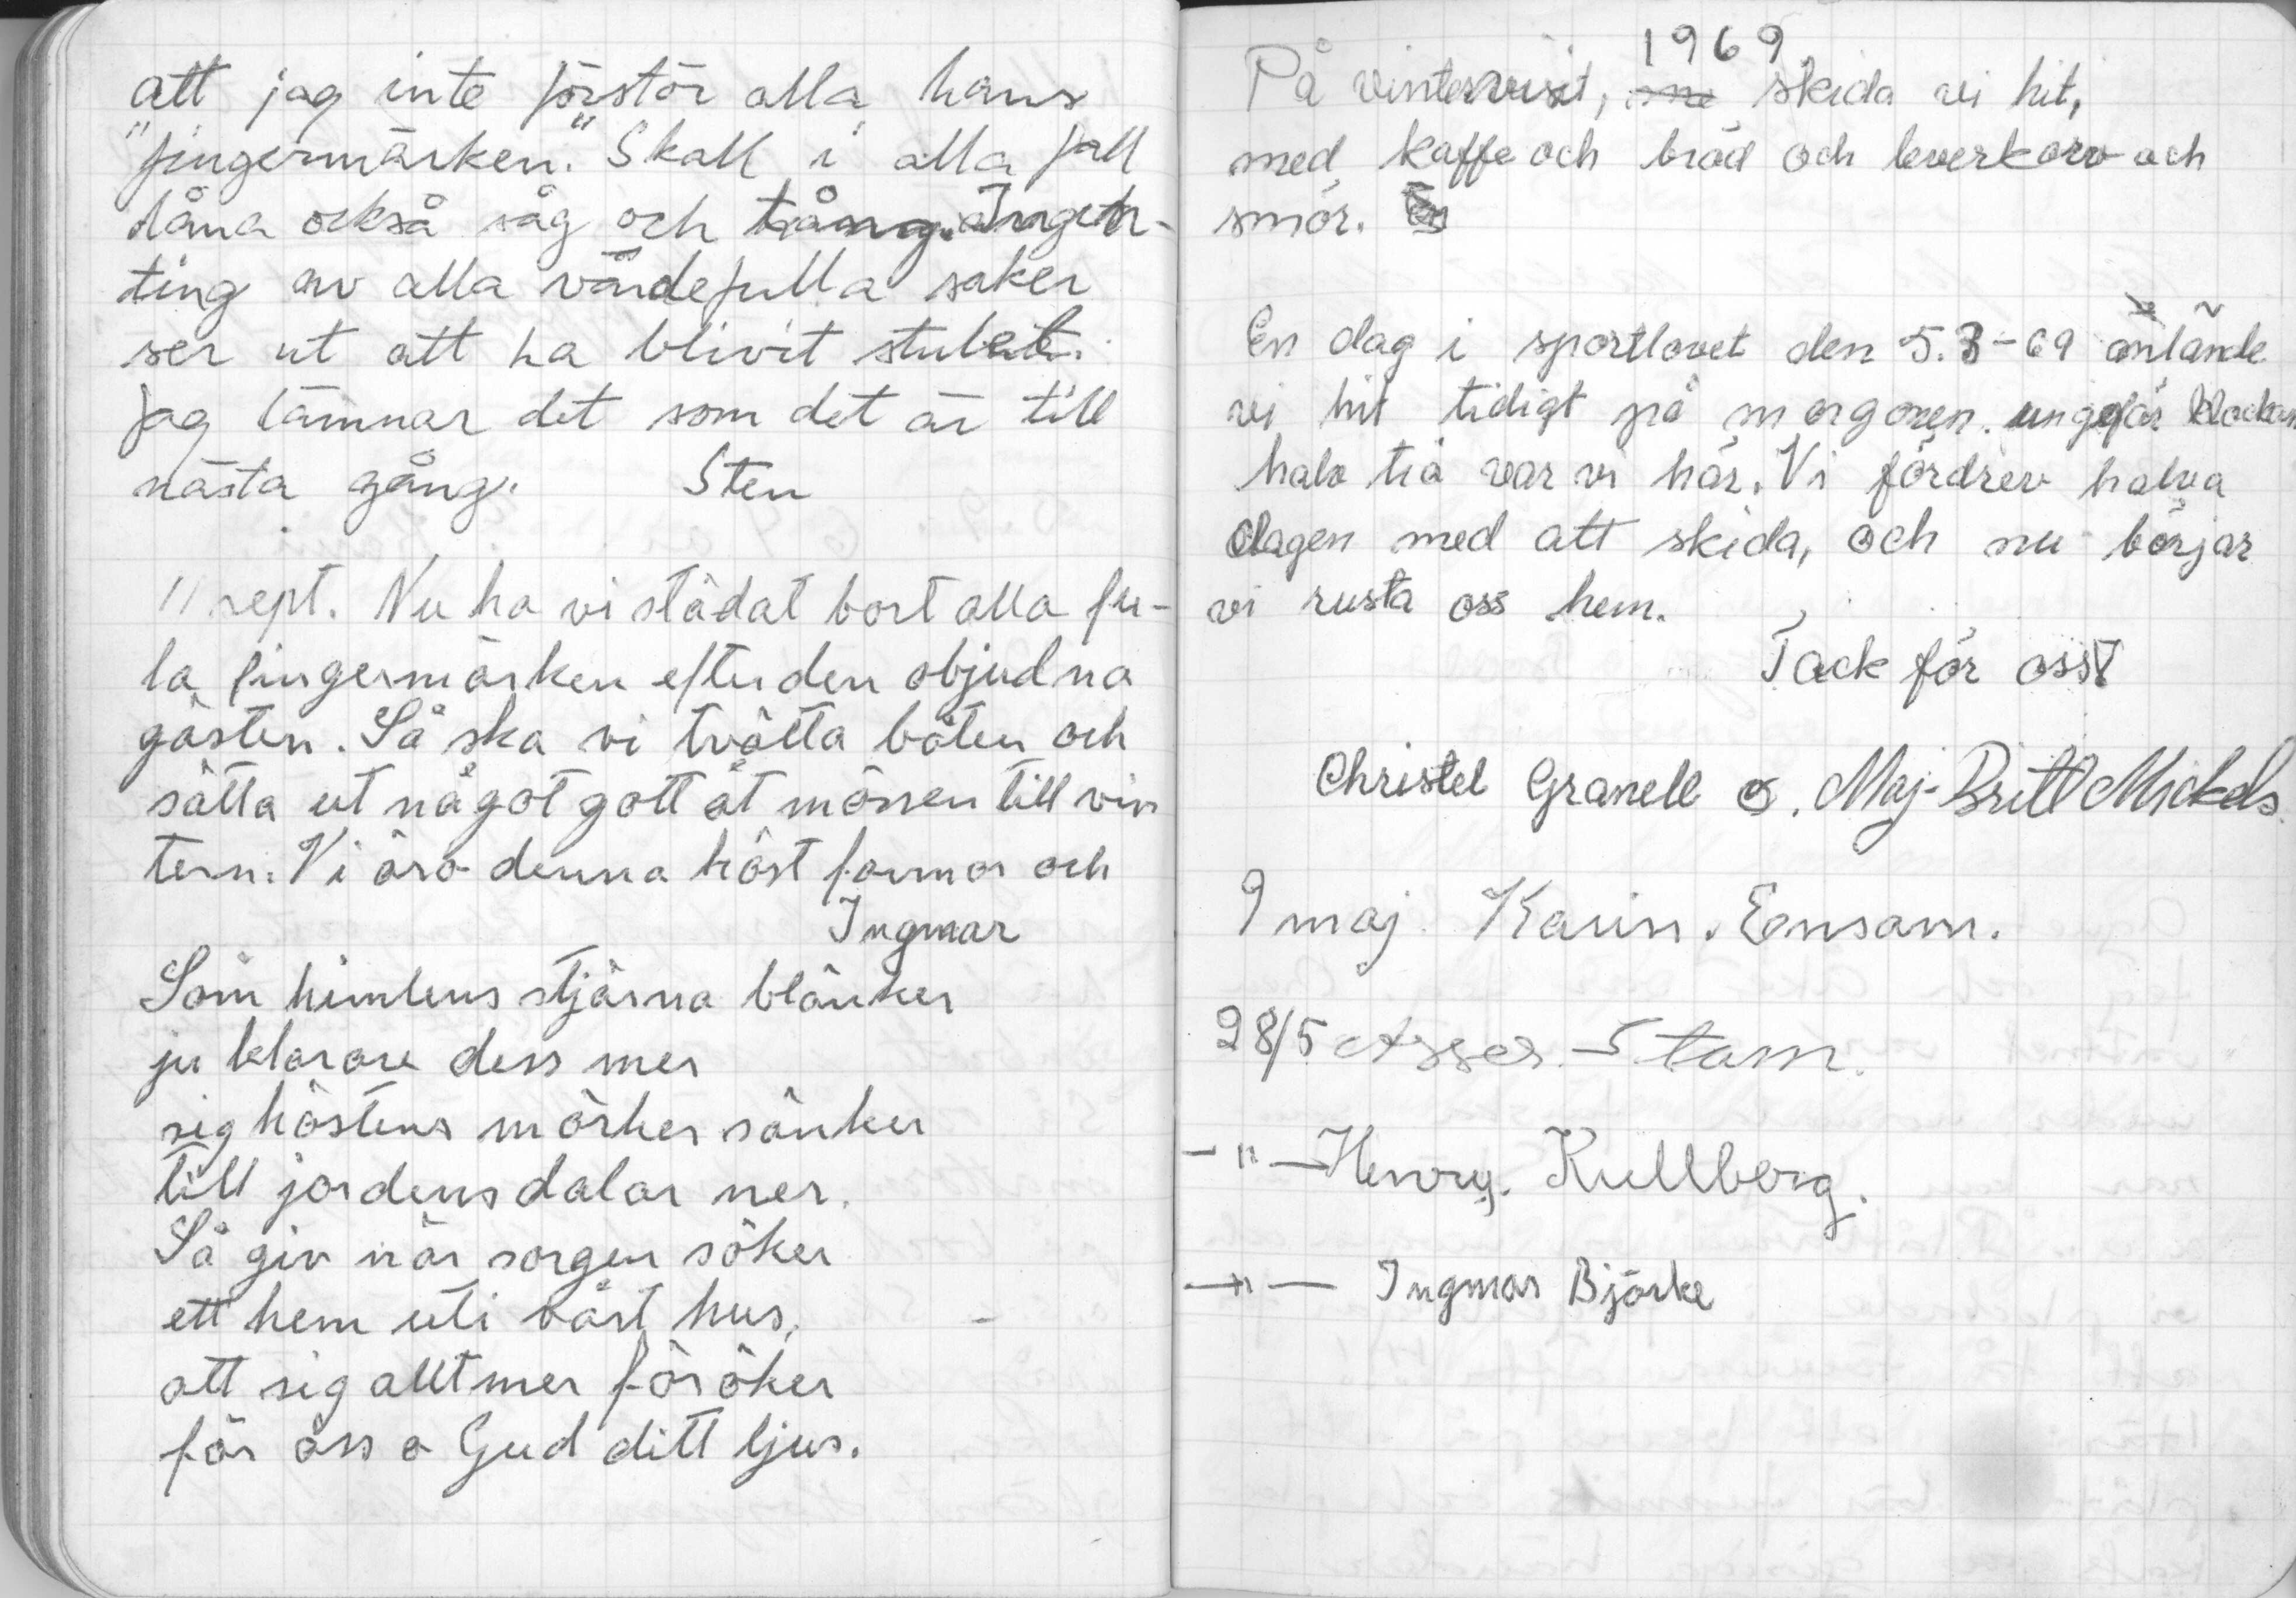 att jag inte förstör alla hans
"fingermärken." Skall i alla fall
låna också såg och tång. Ingen-
ting av alla värdefulla saker
ser ut att ha blivit stulet.
Jag lämnar det som det är till
nästa gång. Sten
11 sept. Nu ha vi städat bort alla fu-
la fingermärken efter den objudna
gästen. Så ska vi tvätta båten och
sätta ut något gott åt mössen till vin
tern. Vi äro denna höst farmor och
Ingmar
Som himlens stjärna blänker
ju klarare dess mer
sig höstens mörker sänker
till jordens dalar ner.
Så giv när sorgen söker
ett hem uti vårt hus,
att sig allt mer föröker
för oss o Gud ditt ljus.
1969
På vintervisit, skida vi hit,
med kaffe och bröd och leverkorv och
smör.
En dag i sportlovet den 5.3-69 anlände
vi hit tidigt på morgonen. ungefär klockan
halv tia var vi här. Vi fördrev halva
dagen med att skida, och nu börjar
vi rusta oss hem.
Tack för oss!
Christel Granell o. Maj-Britt Mickels.
9 maj Karin. Ensam.
28/5 Asser. Stam.
-"- Henry. Kullberg.
-"- Ingmar Björke